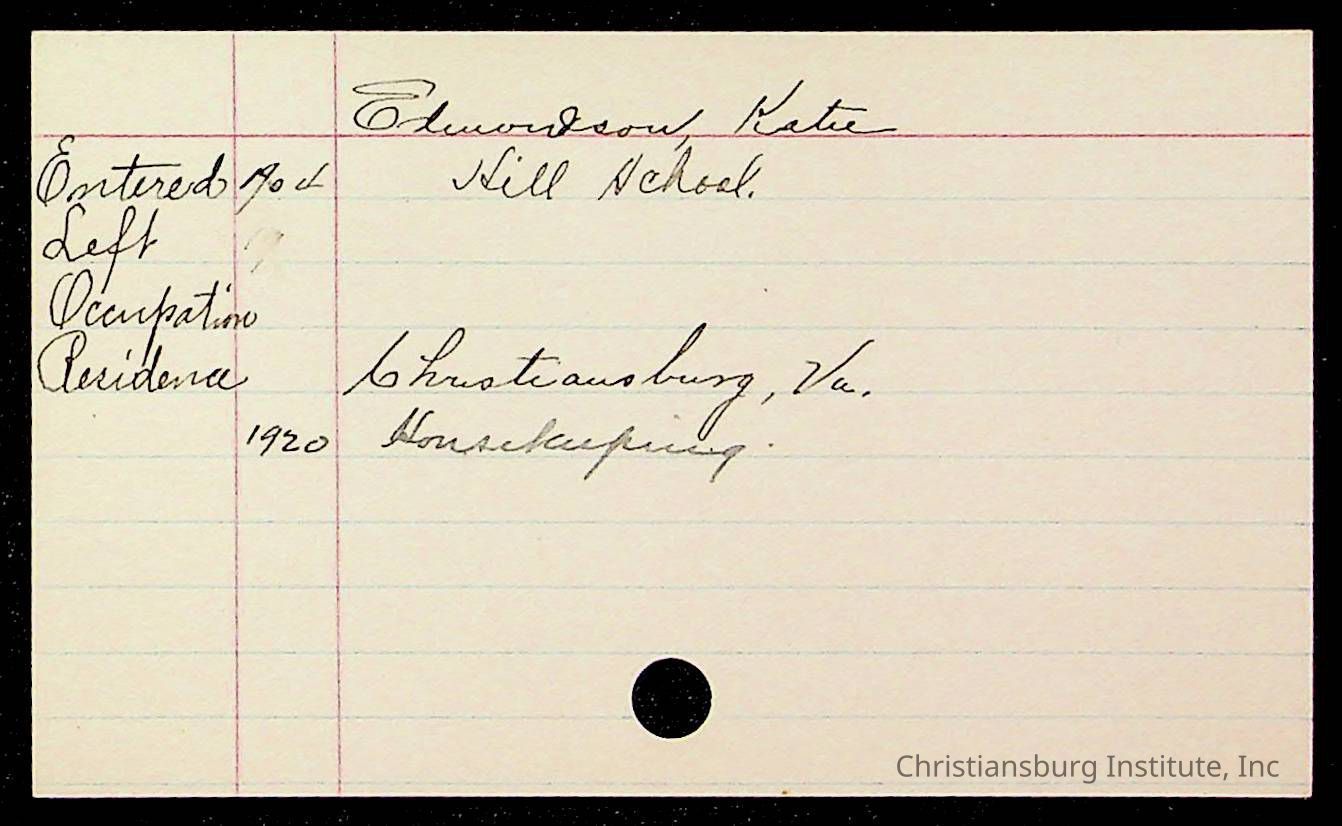 Edmondson, Katie
Entered Hill School.
Left
Occupation
Residence Christiansburg, Va.
1920 Housekeeping.
Christiansburg Institute, Inc